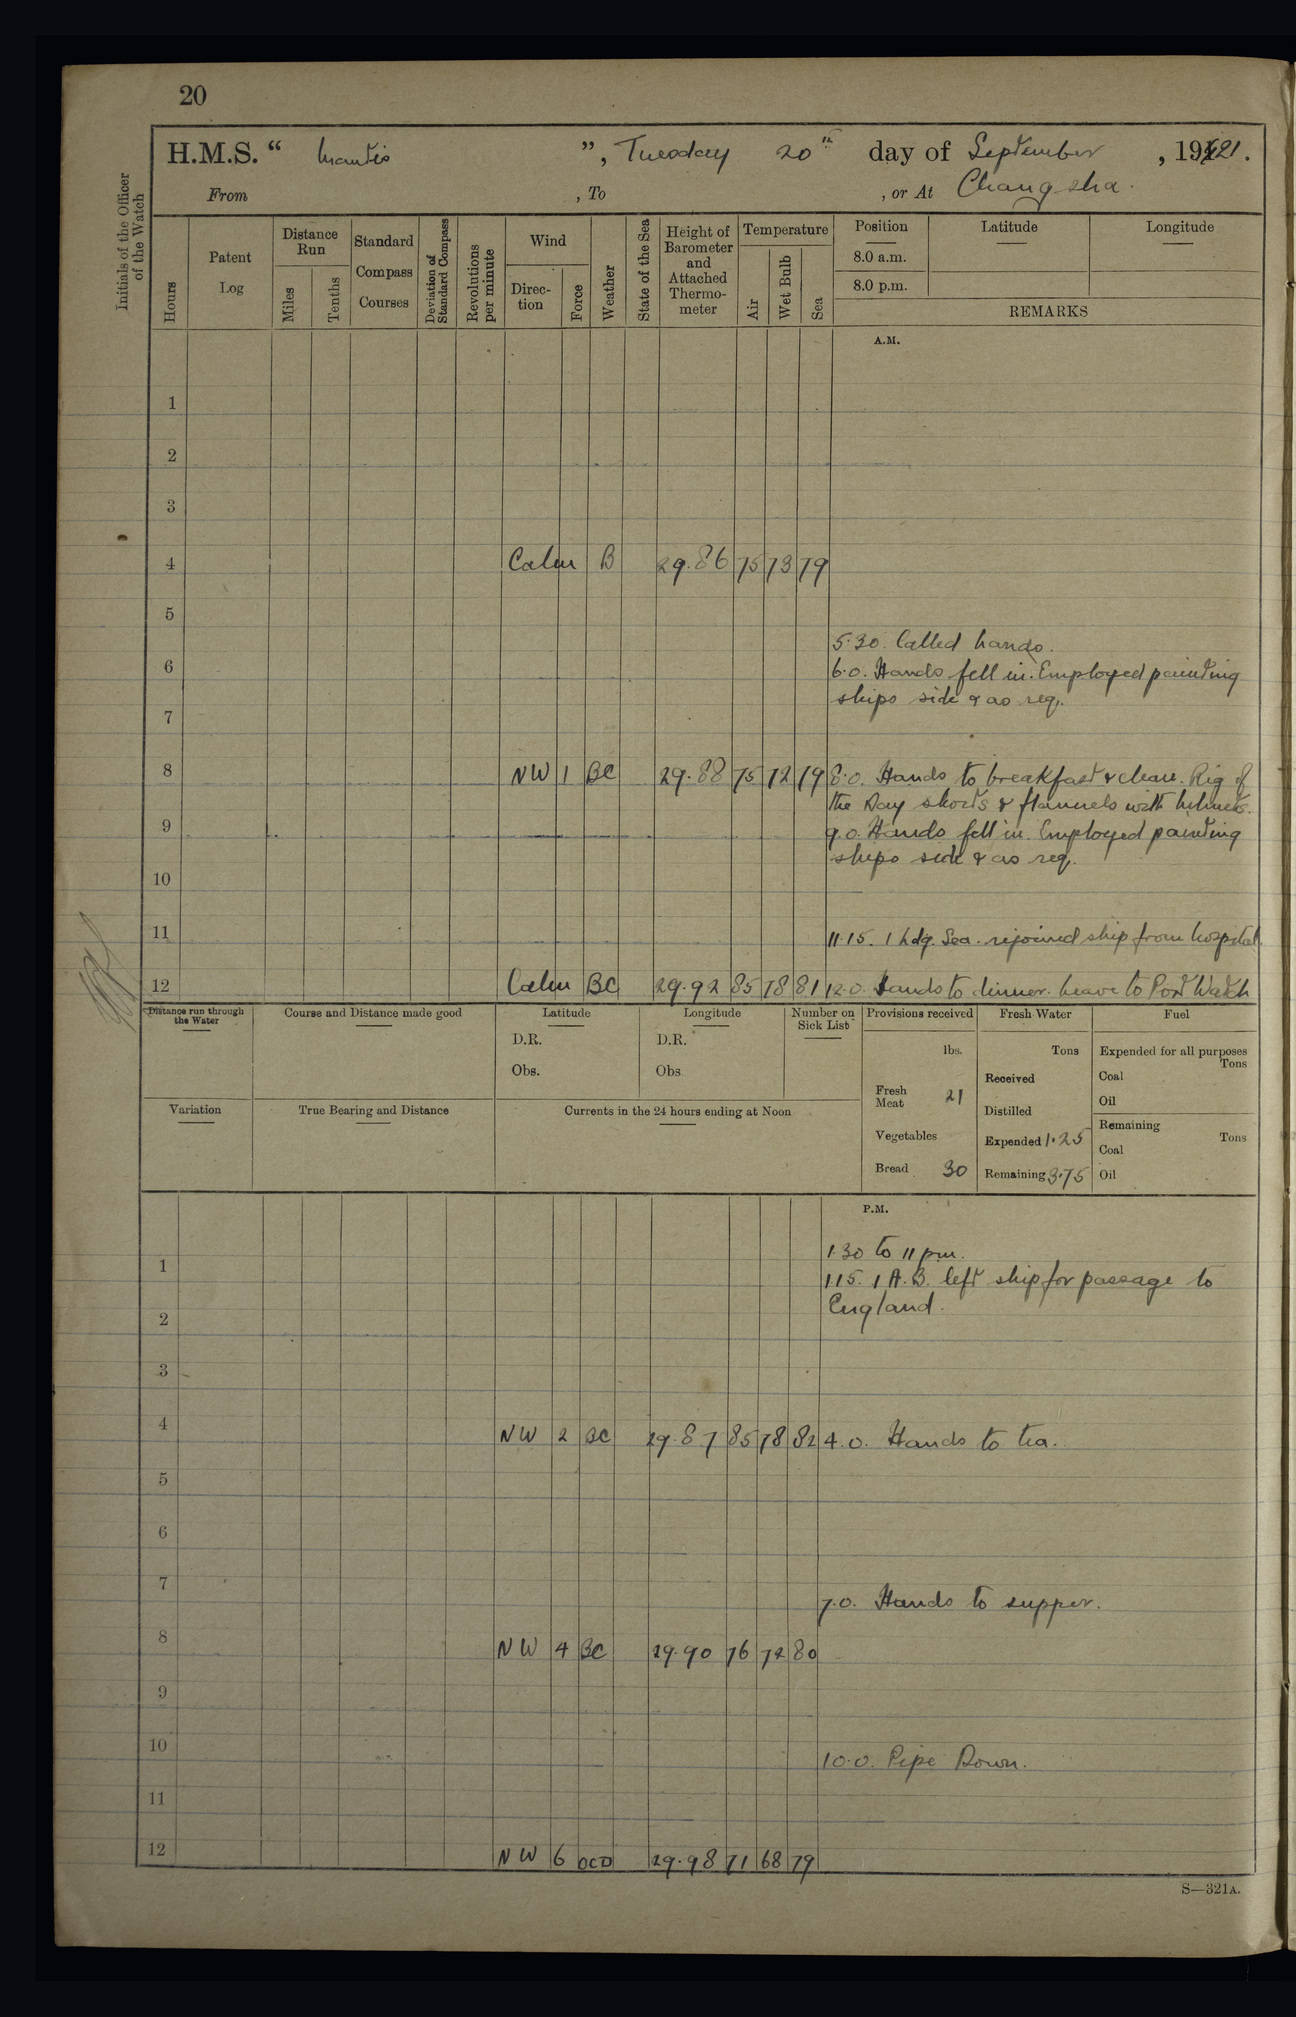 20
H.M.S. “ Mantis ”, Tuesday 20th day of September, 1921.
From , To , or At Changsha.
Initials of the Officer of the Watch
Hours
Patent Log
Distance Run
Miles
Tenths
Standard Compass Courses
Deviation of Standard Compass
Revolutions per minute
Wind
Direction
Force
Weather
State of the Sea
Height of Barometer and Attached Thermometer
Temperature
Air
Wet Bulb
Sea
Position
8.0 a.m.
8.0 p.m.
Latitude
Longitude
REMARKS
A.M.
1
2
3
4 Calm B 29.86 75 73 79
5
5.30. Called hands.
6 6.0. Hands fell in. Employed painting
ships side & as req.
7
8 NW 1 BC 29.88 75 72 79 8.0. Hands to breakfast & clean. Rig of
the Day shorts & flannels with helmets.
9 9.0. Hands fell in. Employed painting
ships side & as req.
10
11 11.15. 1 Ldg. Sea. rejoined ship from hospital.
12 Calm BC 29.92 85 78 81 12.0. Hands to dinner. Leave to Port Watch
Distance run through the Water
Course and Distance made good
Latitude
D.R.
Obs.
Longitude
D.R.
Obs
Number on Sick List
Provisions received
lbs.
Fresh Meat 21
Vegetables
Bread 30
Fresh Water
Tons
Received
Distilled
Expended 1.25
Remaining 3.75
Fuel
Expended for all purposes
Tons
Coal
Oil
Remaining
Tons
Coal
Oil
Variation
True Bearing and Distance
Currents in the 24 hours ending at Noon
P.M.
1.30 to 11 pm.
1 1.15. 1 A.B. left ship for passage to
England.
2
3
4 NW 2 BC 29.87 85 78 82 4.0. Hands to tea.
5
6
7 7.0. Hands to supper.
8 NW 4 BC 29.90 76 72 80
9
10 10.0. Pipe Down.
11
12 NW 6 OCD 29.98 71 68 79
S—321A.